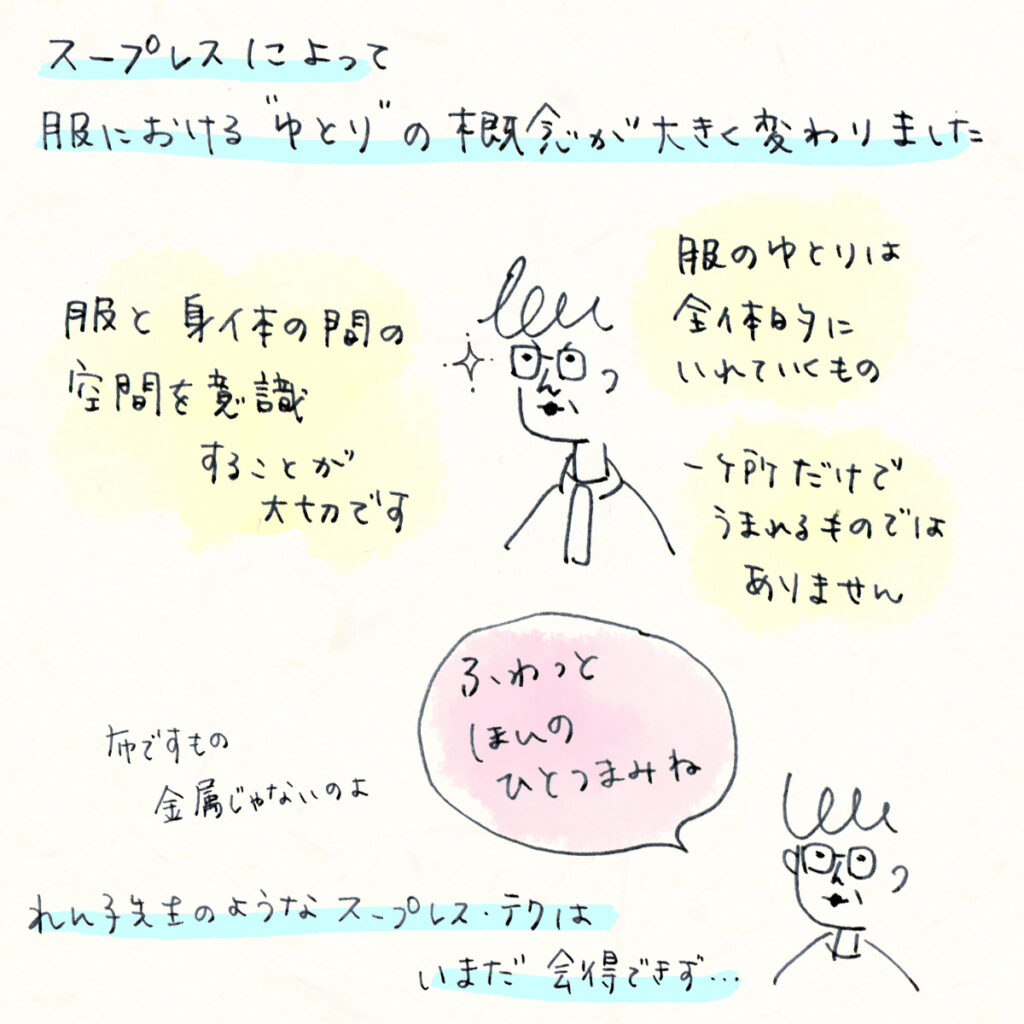 スープレスによって
服における"ゆとり"の概念が大きく変わりました
服と身体の間の
空間を意識
することが
大切です
服のゆとりは
全体的に
いれていくもの
一ヶ所だけで
うまれるものでは
ありません
ふわっと
ほんの
ひとつまみね
布ですもの
金属じゃないのよ
れん子先生のようなスープレス・テクは
いまだ会得できず…